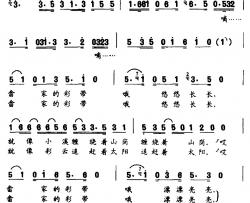 3· 3· 5 3 2 1 1 1· 6 6 1 0 6 1 6 5 0· 5 3 2
嗬
3· 1 0 3 1· 3 3· 2 0 3 2 3 5 3 5 0 5 1 6 0 (1)
嗬
5 1 0 1 3 5· 1 0 5· 1 0 1 3 5 1 0
畲 家的彩 带 哦 悠悠长长,
畲 家的彩 带 哦 悠悠长长,
1 6 6 6 6 5 6 3 5 3 1 6 6 5 3 5 6 6 5
就像小溪缠绕着山岗 缠绕着 山岗,哎
就像彩云追赶着太阳 追赶着 太阳,哎
5 1 0 1 3 5· 1 0 5· 1 0 1 3 5 1 0
畲 家的彩 带 哦 漂漂亮亮,
畲 家的彩 带 哦 漂漂亮亮,